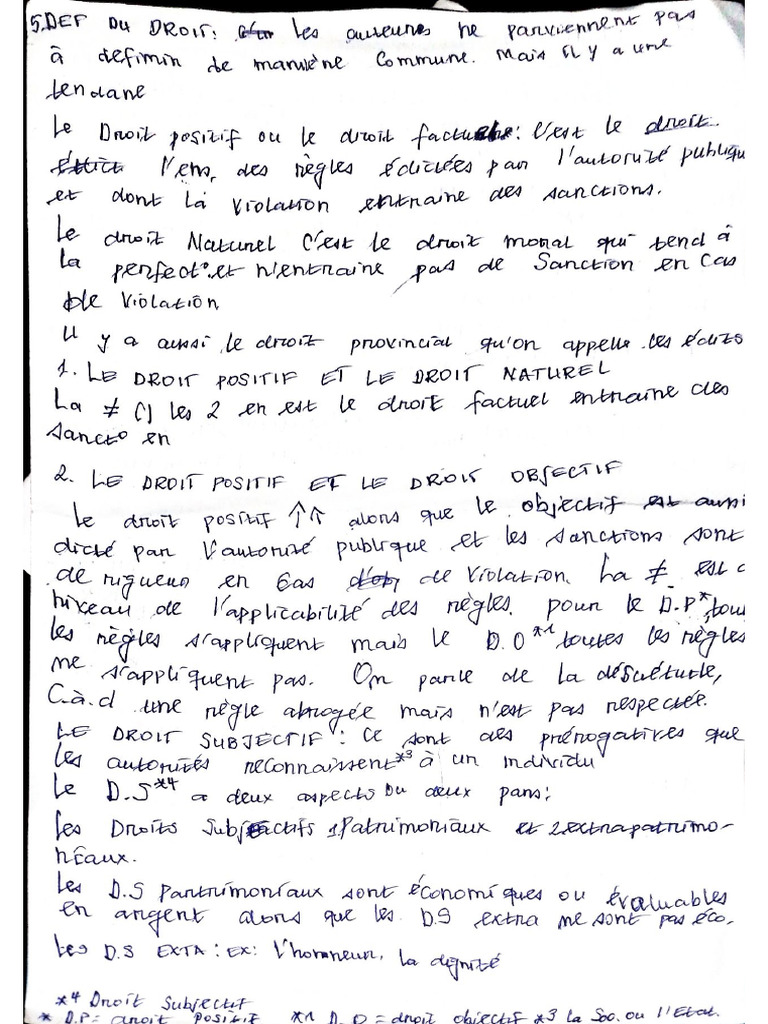 5. DEF DU DROIT: les auteurs ne parviennent pas
à definir de manière commune. Mais il y a une
tendane
Le Droit positif ou le droit factuel: C'est le droit
l'ens, des règles édictées par l'autorité publiqu
et dont la violation entraine des sanctions.
Le droit Naturel C'est le droit moral qui tend à
la perfect° et n'entraine pas de Sanction en Cas
de Violation
Il y a aussi le droit provincial qu'on appelle les édits
1. LE DROIT POSITIF ET LE DROIT NATUREL
La ≠ les 2 en est le droit factuel entraine des
sanct° en
2. LE DROIT POSITIF ET LE DROIT OBJECTIF
Le droit positif ↑↑ alors que le objectif est aussi
dicté par l'autorité publique et les sanctions sont
de rigueur en Cas de Violation. La ≠ est
niveau de l'applicabilité des règles. pour le D.P* tou
les règles s'appliquent mais le D.O*1 toutes les règles
ne s'appliquent pas. On parle de la désuétude,
C.à.d une règle abrogée mais n'est pas respectée.
LE DROIT SUBJECTIF: Ce sont des prérogatives que
les autorités reconnaissent*3 à un individu
Le D.S*4 a deux aspects ou deux pans:
Les Droits Subjectifs 1.Patrimoniaux et 2.extrapatrimo-
niaux.
Les D.S Partrimoniaux sont économiques ou évaluables
en argent alors que les D.S extra ne sont pas éco.
Les D.S EXTA: EX: l'honneur, la dignité
*4 Droit Subjectif
* D.P= droit positif *1 D.O=droit objectif *3 la Soc. ou l'Etat.